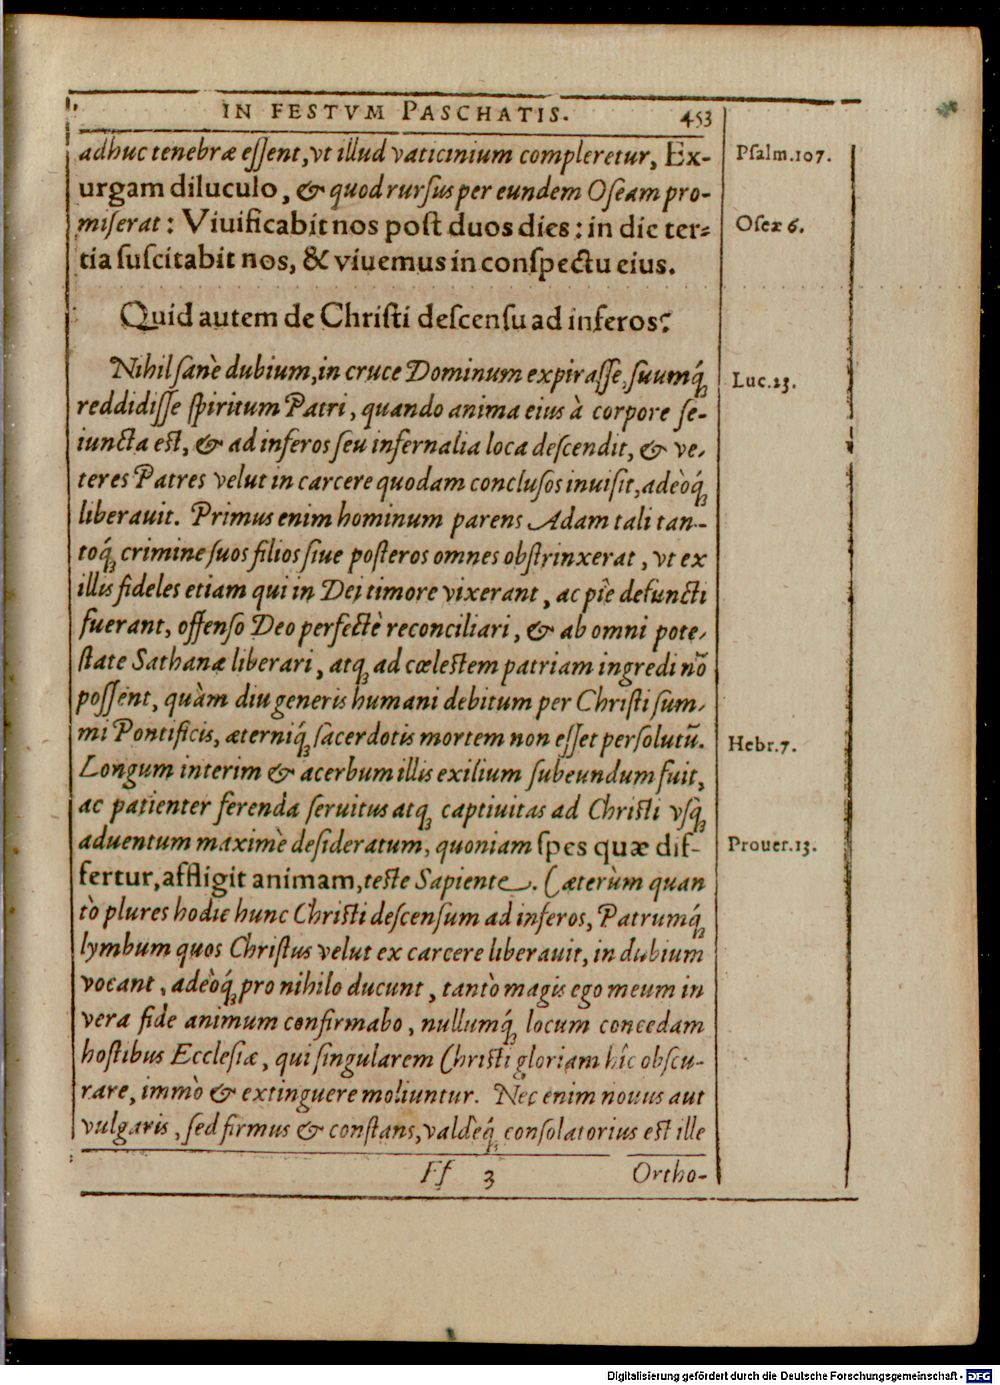 IN FESTVM PASCHATIS. 453
adhuc tenebræ eſſent, vt illud vaticinium compleretur, Ex-
urgam diluculo, & quod rurſus per eundem Oſeam pro-
miſerat: Viuificabit nos poſt duos dies: in die ter-
tia ſuſcitabit nos, & viuemus in conſpectu eius.
Psalm.107.
Oſeæ 6.
Quid autem de Chriſti deſcenſu ad inferos?
Nihil ſanè dubium, in cruce Dominum expiraſſe, ſuumq́
reddidiſſe ſpiritum Patri, quando anima eius à corpore ſe-
iuncta eſt, & ad inferos ſeu infernalia loca deſcendit, & ve-
teres Patres velut in carcere quodam concluſos inuiſit, adeòq́
liberauit. Primus enim hominum parens Adam tali tan-
toq́ crimine ſuos filios ſiue poſteros omnes obſtrinxerat, vt ex
illis fideles etiam qui in Dei timore vixerant, ac piè defuncti
fuerant, offenſo Deo perfectè reconciliari, & ab omni pote-
ſtate Sathanæ liberari, atq; ad cœleſtem patriam ingredi nõ
poſſent, quàm diu generis humani debitum per Chriſti ſum-
mi Pontificis, æterniq́ ſacerdotis mortem non eſſet perſolutũ.
Longum interim & acerbum illis exilium ſubeundum fuit,
ac patienter ferenda ſeruitus atq; captiuitas ad Chriſti vſq́
aduentum maximè deſideratum, quoniam ſpes quæ dif-
fertur, affligit animam, teſte Sapiente. Cæterùm quan
tò plures hodie hunc Chriſti deſcenſum ad inferos, Patrumq́
lymbum quos Chriſtus velut ex carcere liberauit, in dubium
vocant, adeòq́ pro nihilo ducunt, tantò magis ego meum in
vera fide animum confirmabo, nullumq́ locum concedam
hoſtibus Eccleſiæ, qui ſingularem Chriſti gloriam hîc obſcu-
rare, immò & extinguere moliuntur. Nec enim nouus aut
vulgaris, ſed firmus & conſtans, valdeq́ conſolatorius eſt ille
Luc.23.
Hebr.7.
Prouer.13.
Ff 3 Ortho-
Digitalisierung gefördert durch die Deutsche Forschungsgemeinschaft - DFG